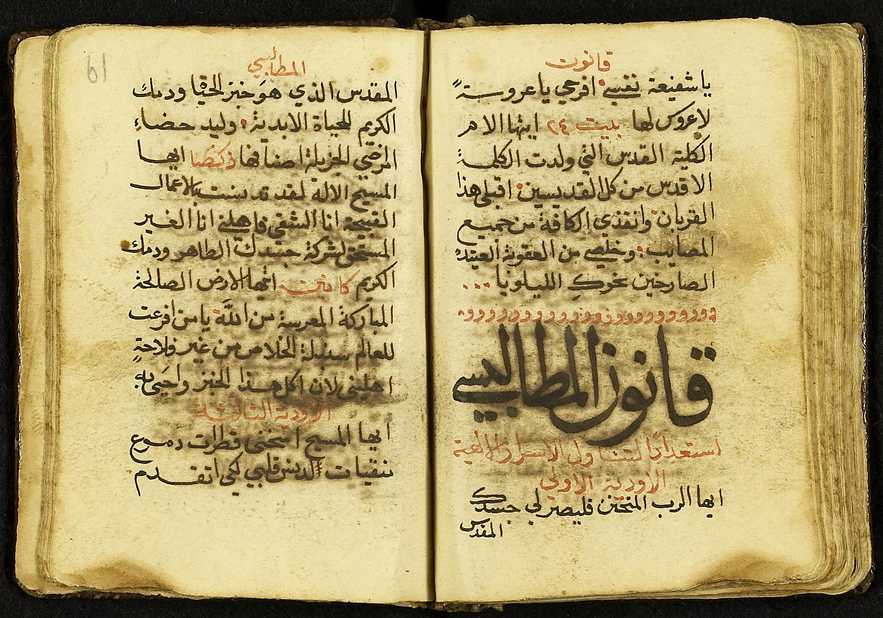 قانون
ياشفيعة نفسي افرحي ياعروسة
لاعروس لها بيت ٢٤ ايتها الام
الكلية القدس التي ولدت الكلمة
الاقدس من كل القديسين اقبلي هذا
القربان وانقذي الكافة من جميع
المصايب وخلصي من العقوبة العتيده
الصارخين نحوك الليلويا
قانون المطاليسي
استعدادًا لتناول الاسرار الالهية
الاودية الاولي
ايها الرب المتحنن فليصر لي جسدك
المقدس
المطاليسي
المقدس الذي هو خبز الحيوة ودمك
الكريم للحياة الابدية وليد حضاء
المرضي الجزيلة اصنافها ذكصا ايها
المسيح الاله لقد تدنست بالاعمال
القبيحة انا الشقي فاهلني انا الغير
المستحق لشركة جسدك الطاهر ودمك
الكريم كانين ايتها الارض الصالحة
المباركة العروسة من الله يامن افرعت
للعالم سنبلة الخلاص من غير فلاحةٍ
اهليني لان اكل هذا الخبز واحيى به
الاودية الثالثة
ايها المسيح امنحني قطرات دموع
تنقيات لدنس قلبي لكي اتقدم
61